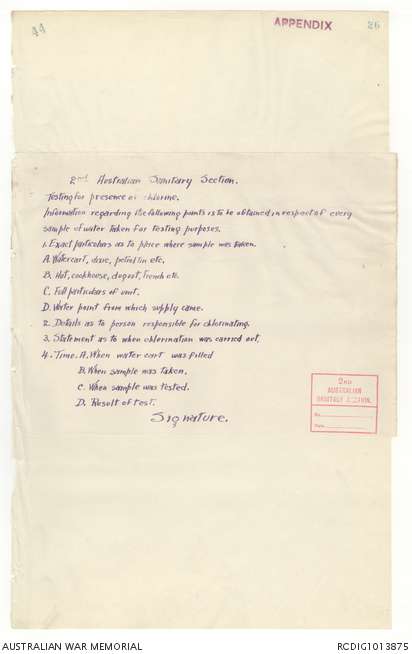 44
APPENDIX
26
2nd Australian Sanitary Section.
Testing for presence of chlorine.
Information regarding the following points is to be obtained in respect of every
sample of water taken for testing purposes.
1. Exact particulars as to place where sample was taken.
A. Watercart, dixie, petrol tin etc,
B. Hut, cookhouse, dugout, trench etc.
C. Full particulars of unit.
D. Water point from which supply came.
2. Details as to person responsible for chlorinating.
3. Statement as to when chlorination was carried out,
4. Time. A. When water cart was filled
B. When sample was taken,
C. When sample was tested.
D. Result of test.
Signature.
2ND
AUSTRALIAN
SANITARY SECTION.
No.
Date
AUSTRALIAN WAR MEMORIAL
RCDIG1013875